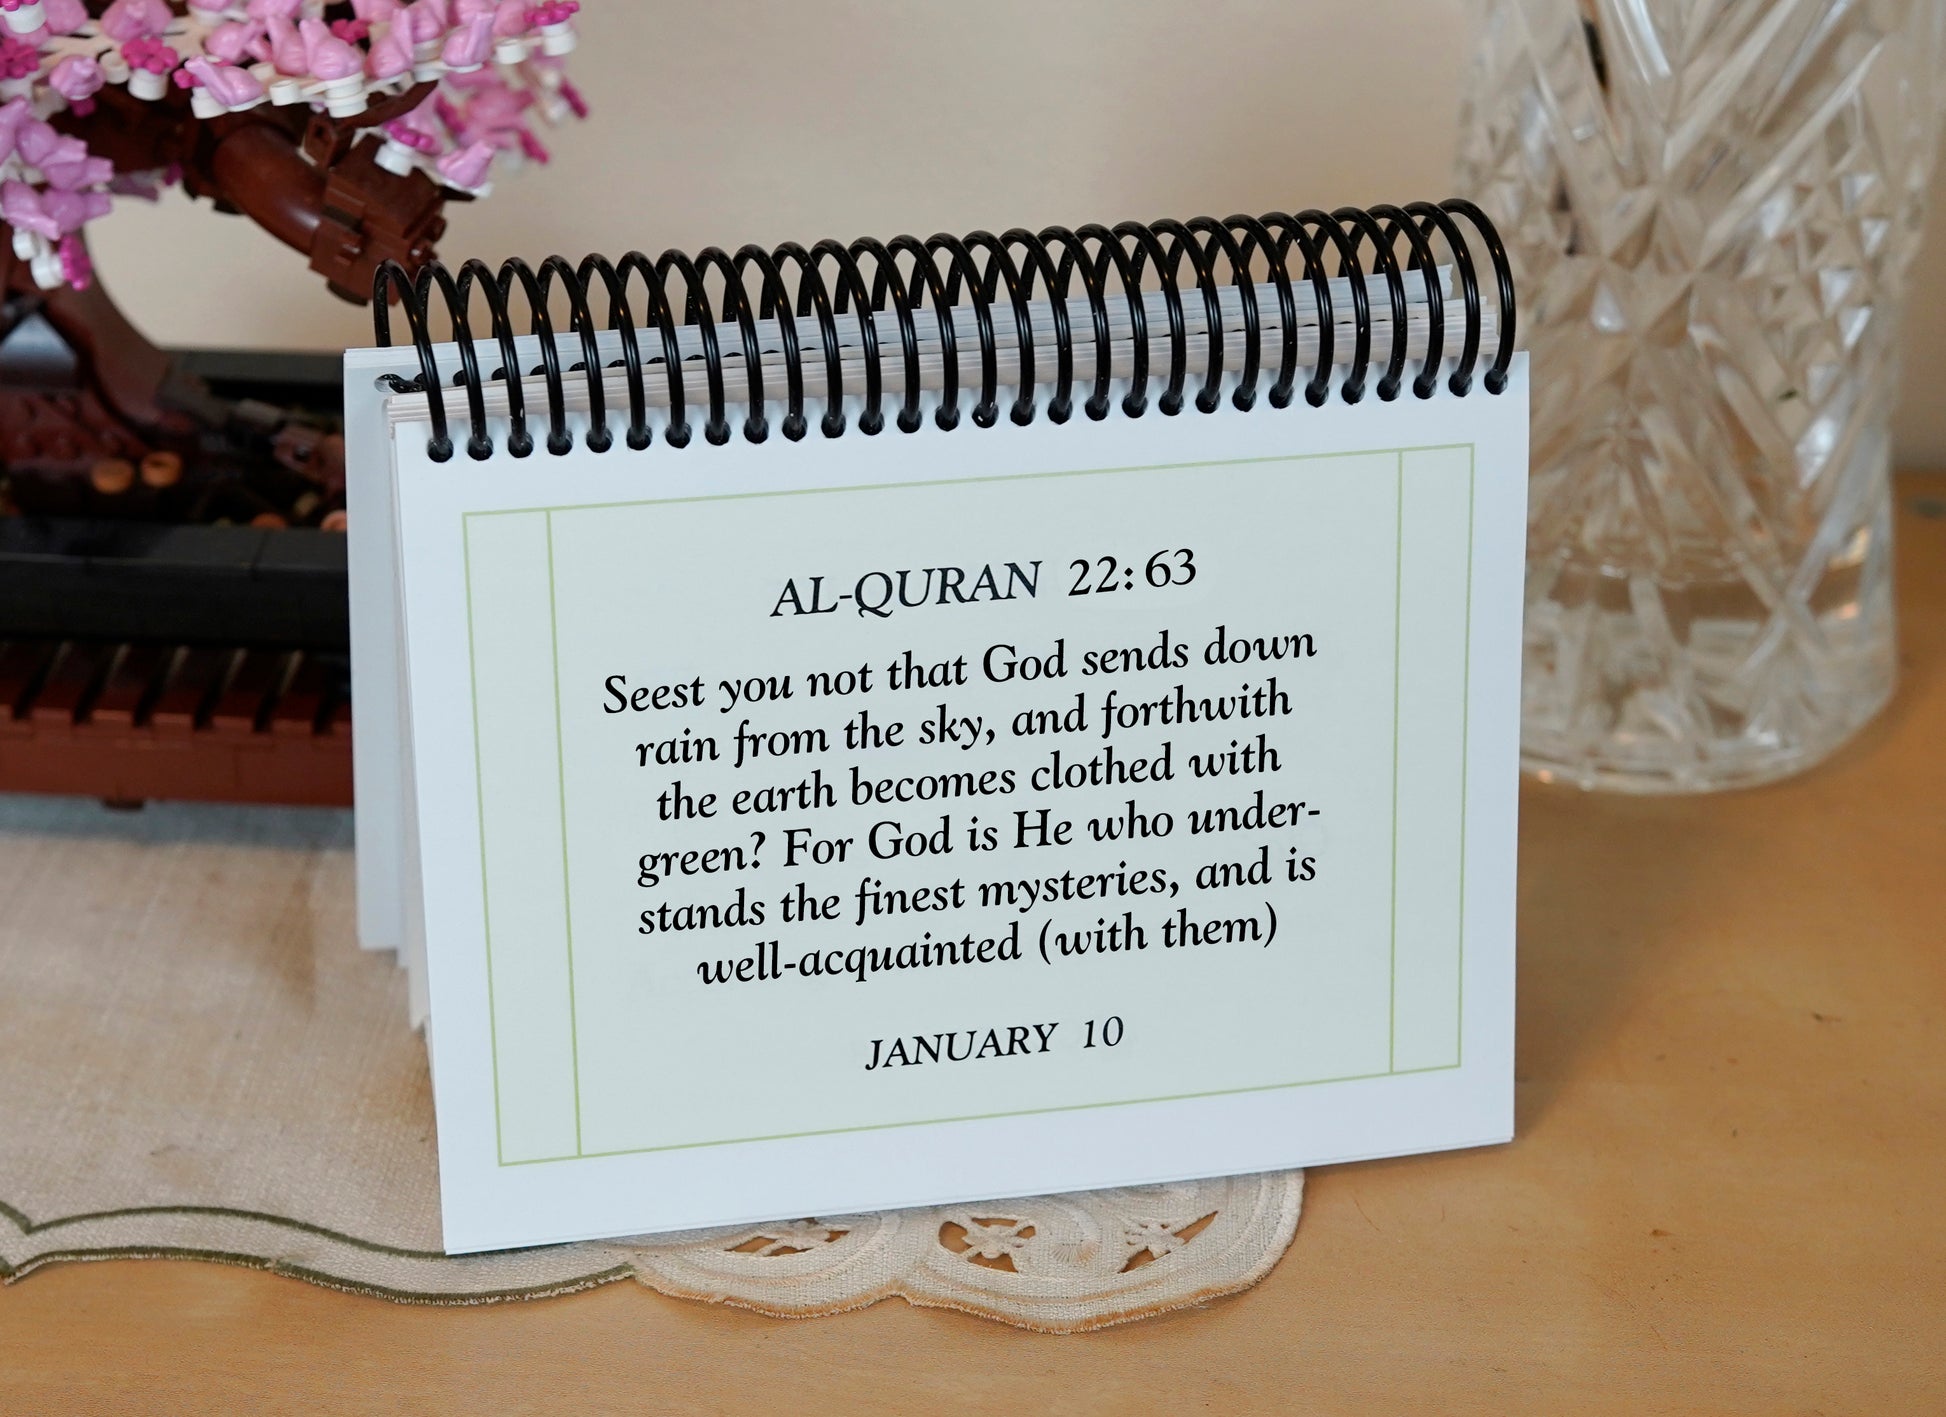 AL-QURAN 22:63
Seest you not that God sends down
rain from the sky, and forthwith
the earth becomes clothed with
green? For God is He who under-
stands the finest mysteries, and is
well-acquainted (with them)
JANUARY 10